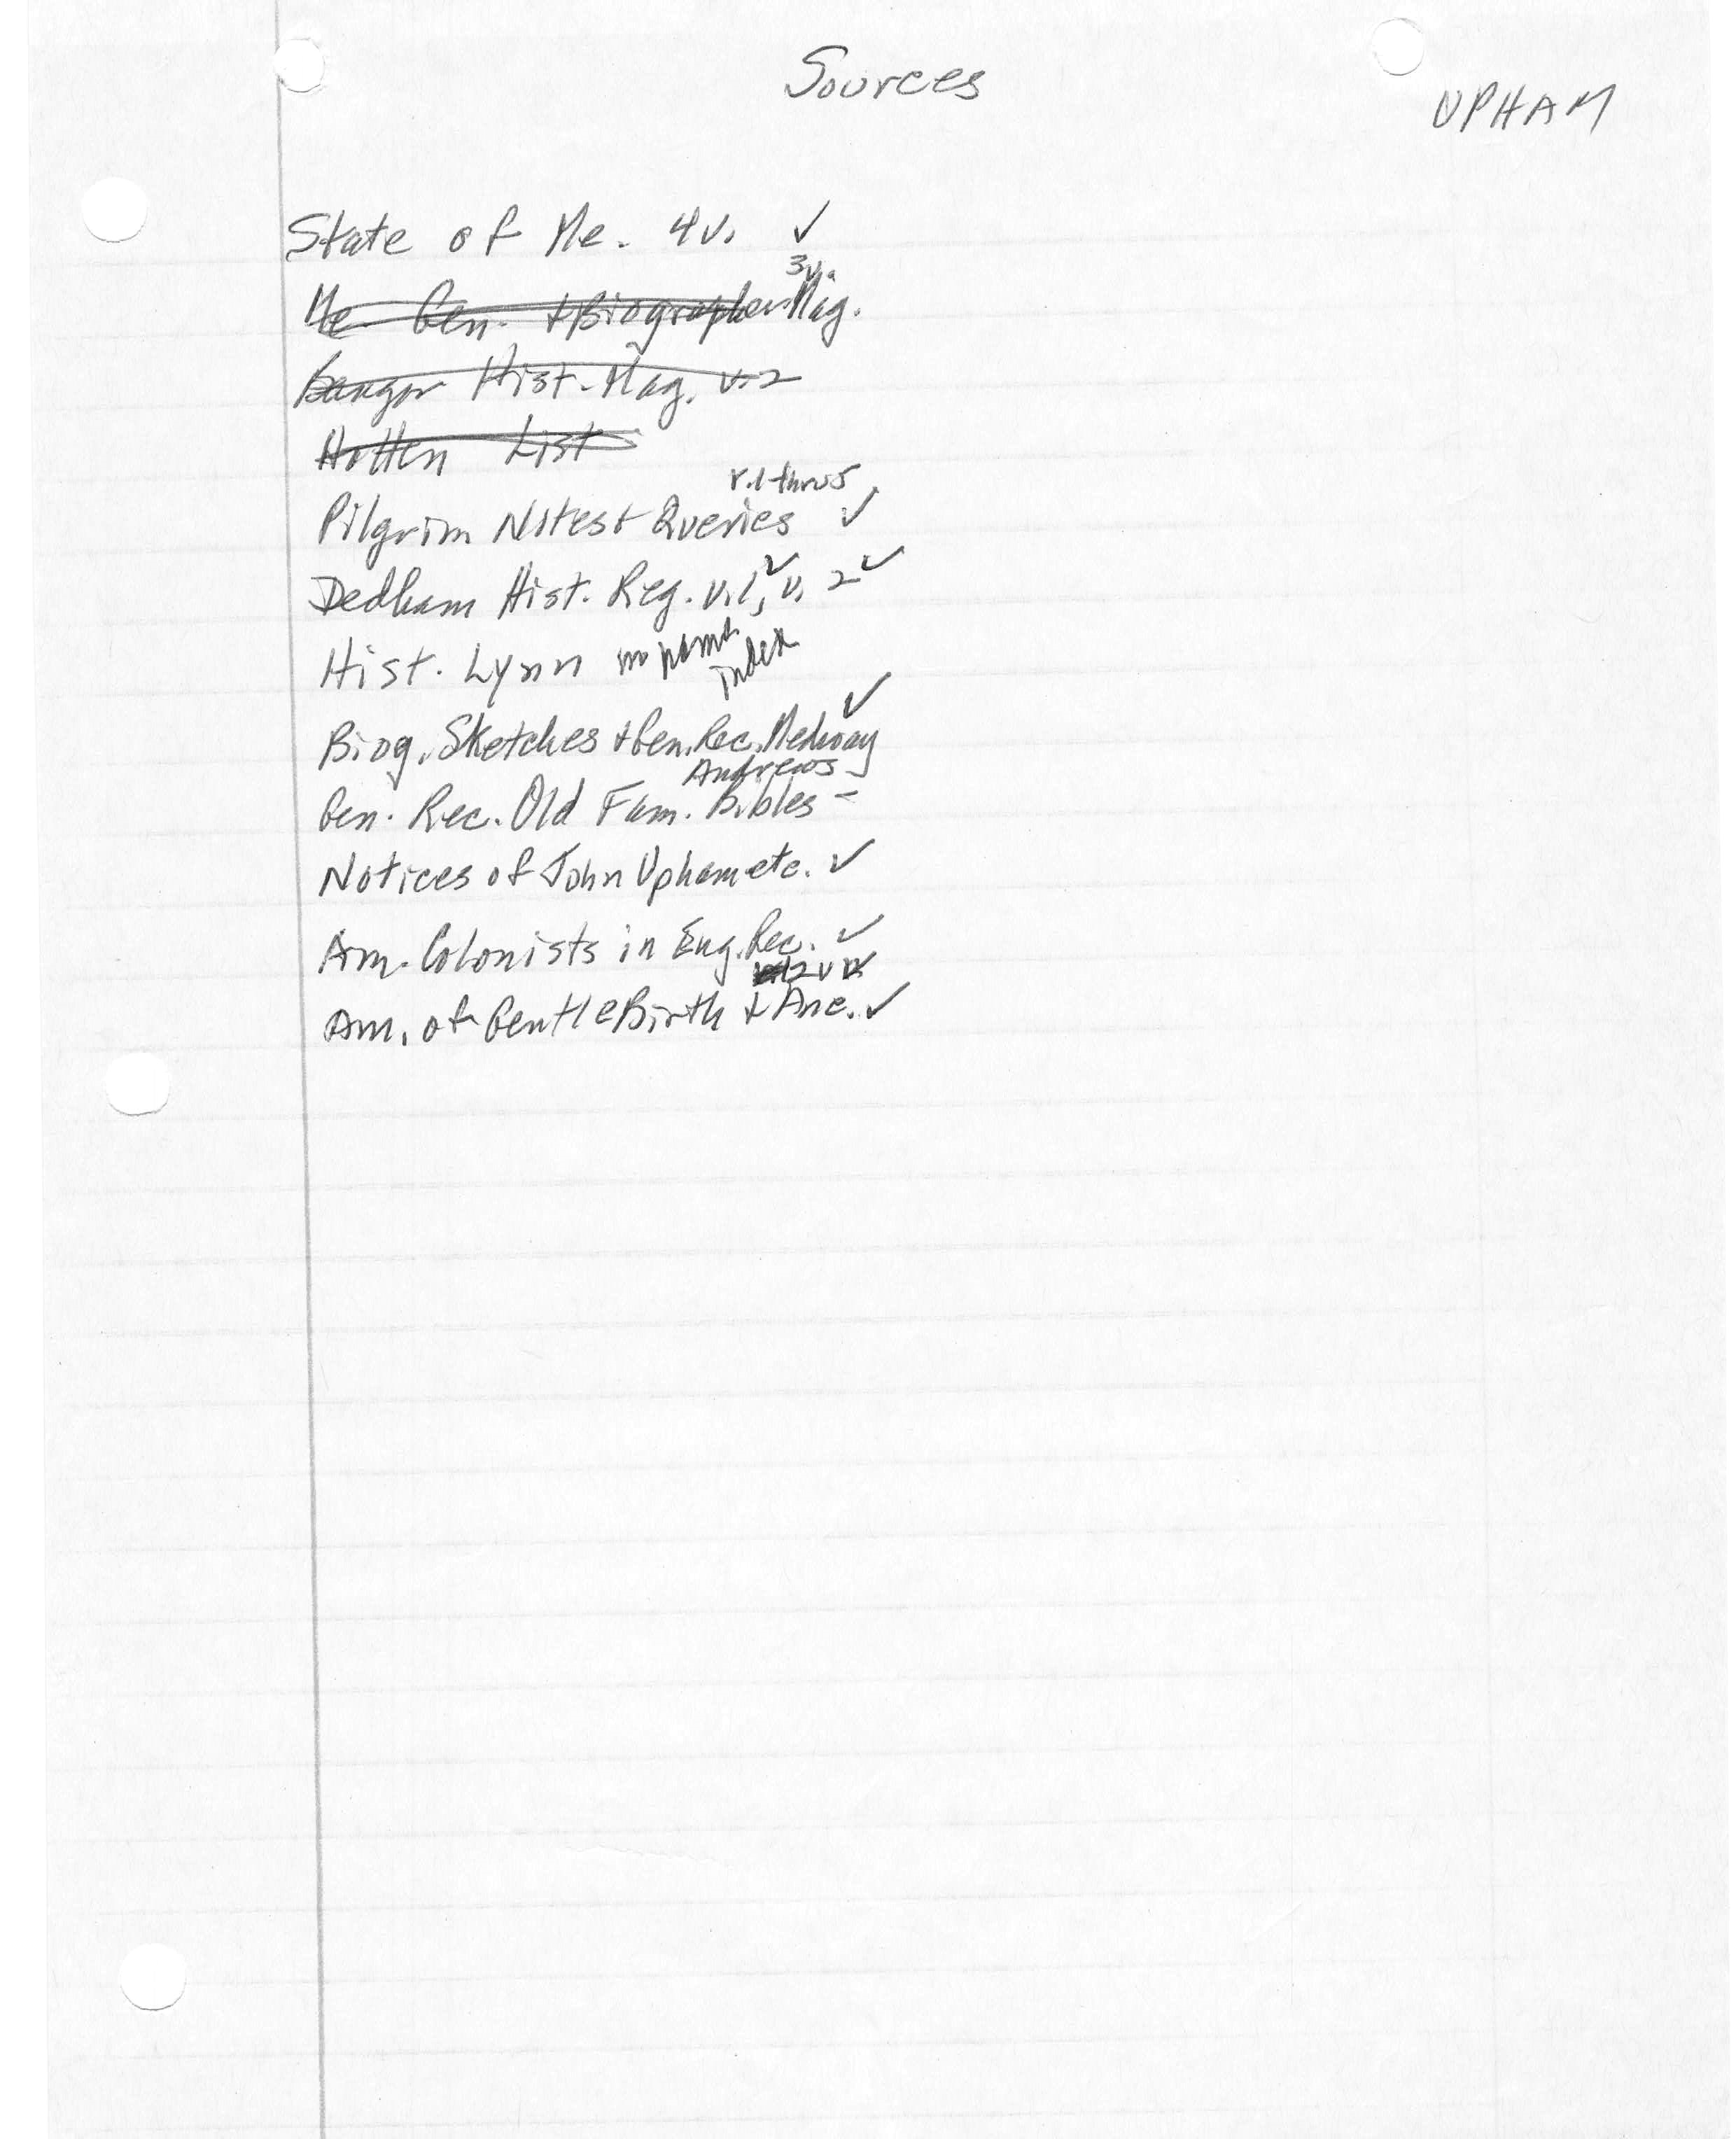 Sources
UPHAM
State of Me. 4v. ✓
3v.
Me. Gen. & Biographer Mag.
Bangor Hist. Mag. v.2
Hotten List
v.1 thru 5
Pilgrim Notes & Queries ✓
Dedham Hist. Reg. v.1,✓ v. 2✓
Hist. Lynn no name
index
Biog. Sketches & Gen. Rec. Medway ✓
Andrews
Gen. Rec. Old Fam. Bibles -
Notices of John Upham etc. ✓
Am. Colonists in Eng. Rec. ✓
Am. of Gentle Birth & Anc. ✓